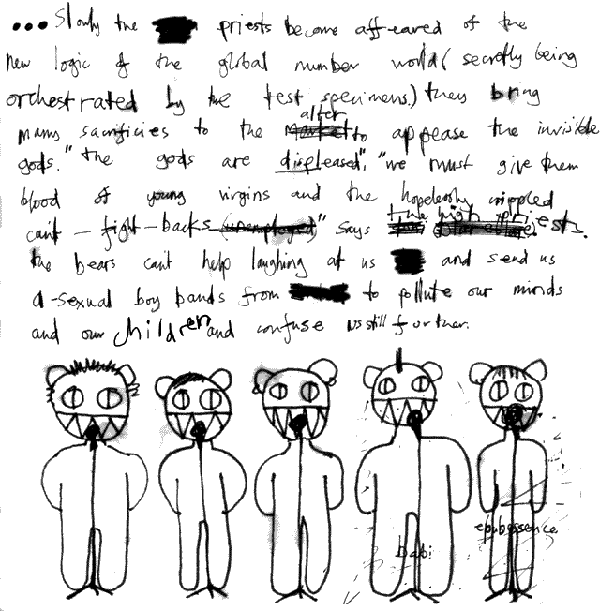 ...Slowly the priests become affeared of the
new logic of the global number world (secretly being
orchestrated by the test specimens.) they bring
many sacrificies to the alter to appease the invisible
gods." the gods are displeased", "we must give them
blood of young virgins and the hopelessly crippled
can't-fight-backs (unemployed)" says the high priests.
the bears can't help laughing at us and send us
a-sexual boy bands from to pollute our minds
and our children and confuse us still further.
babi
epubessence